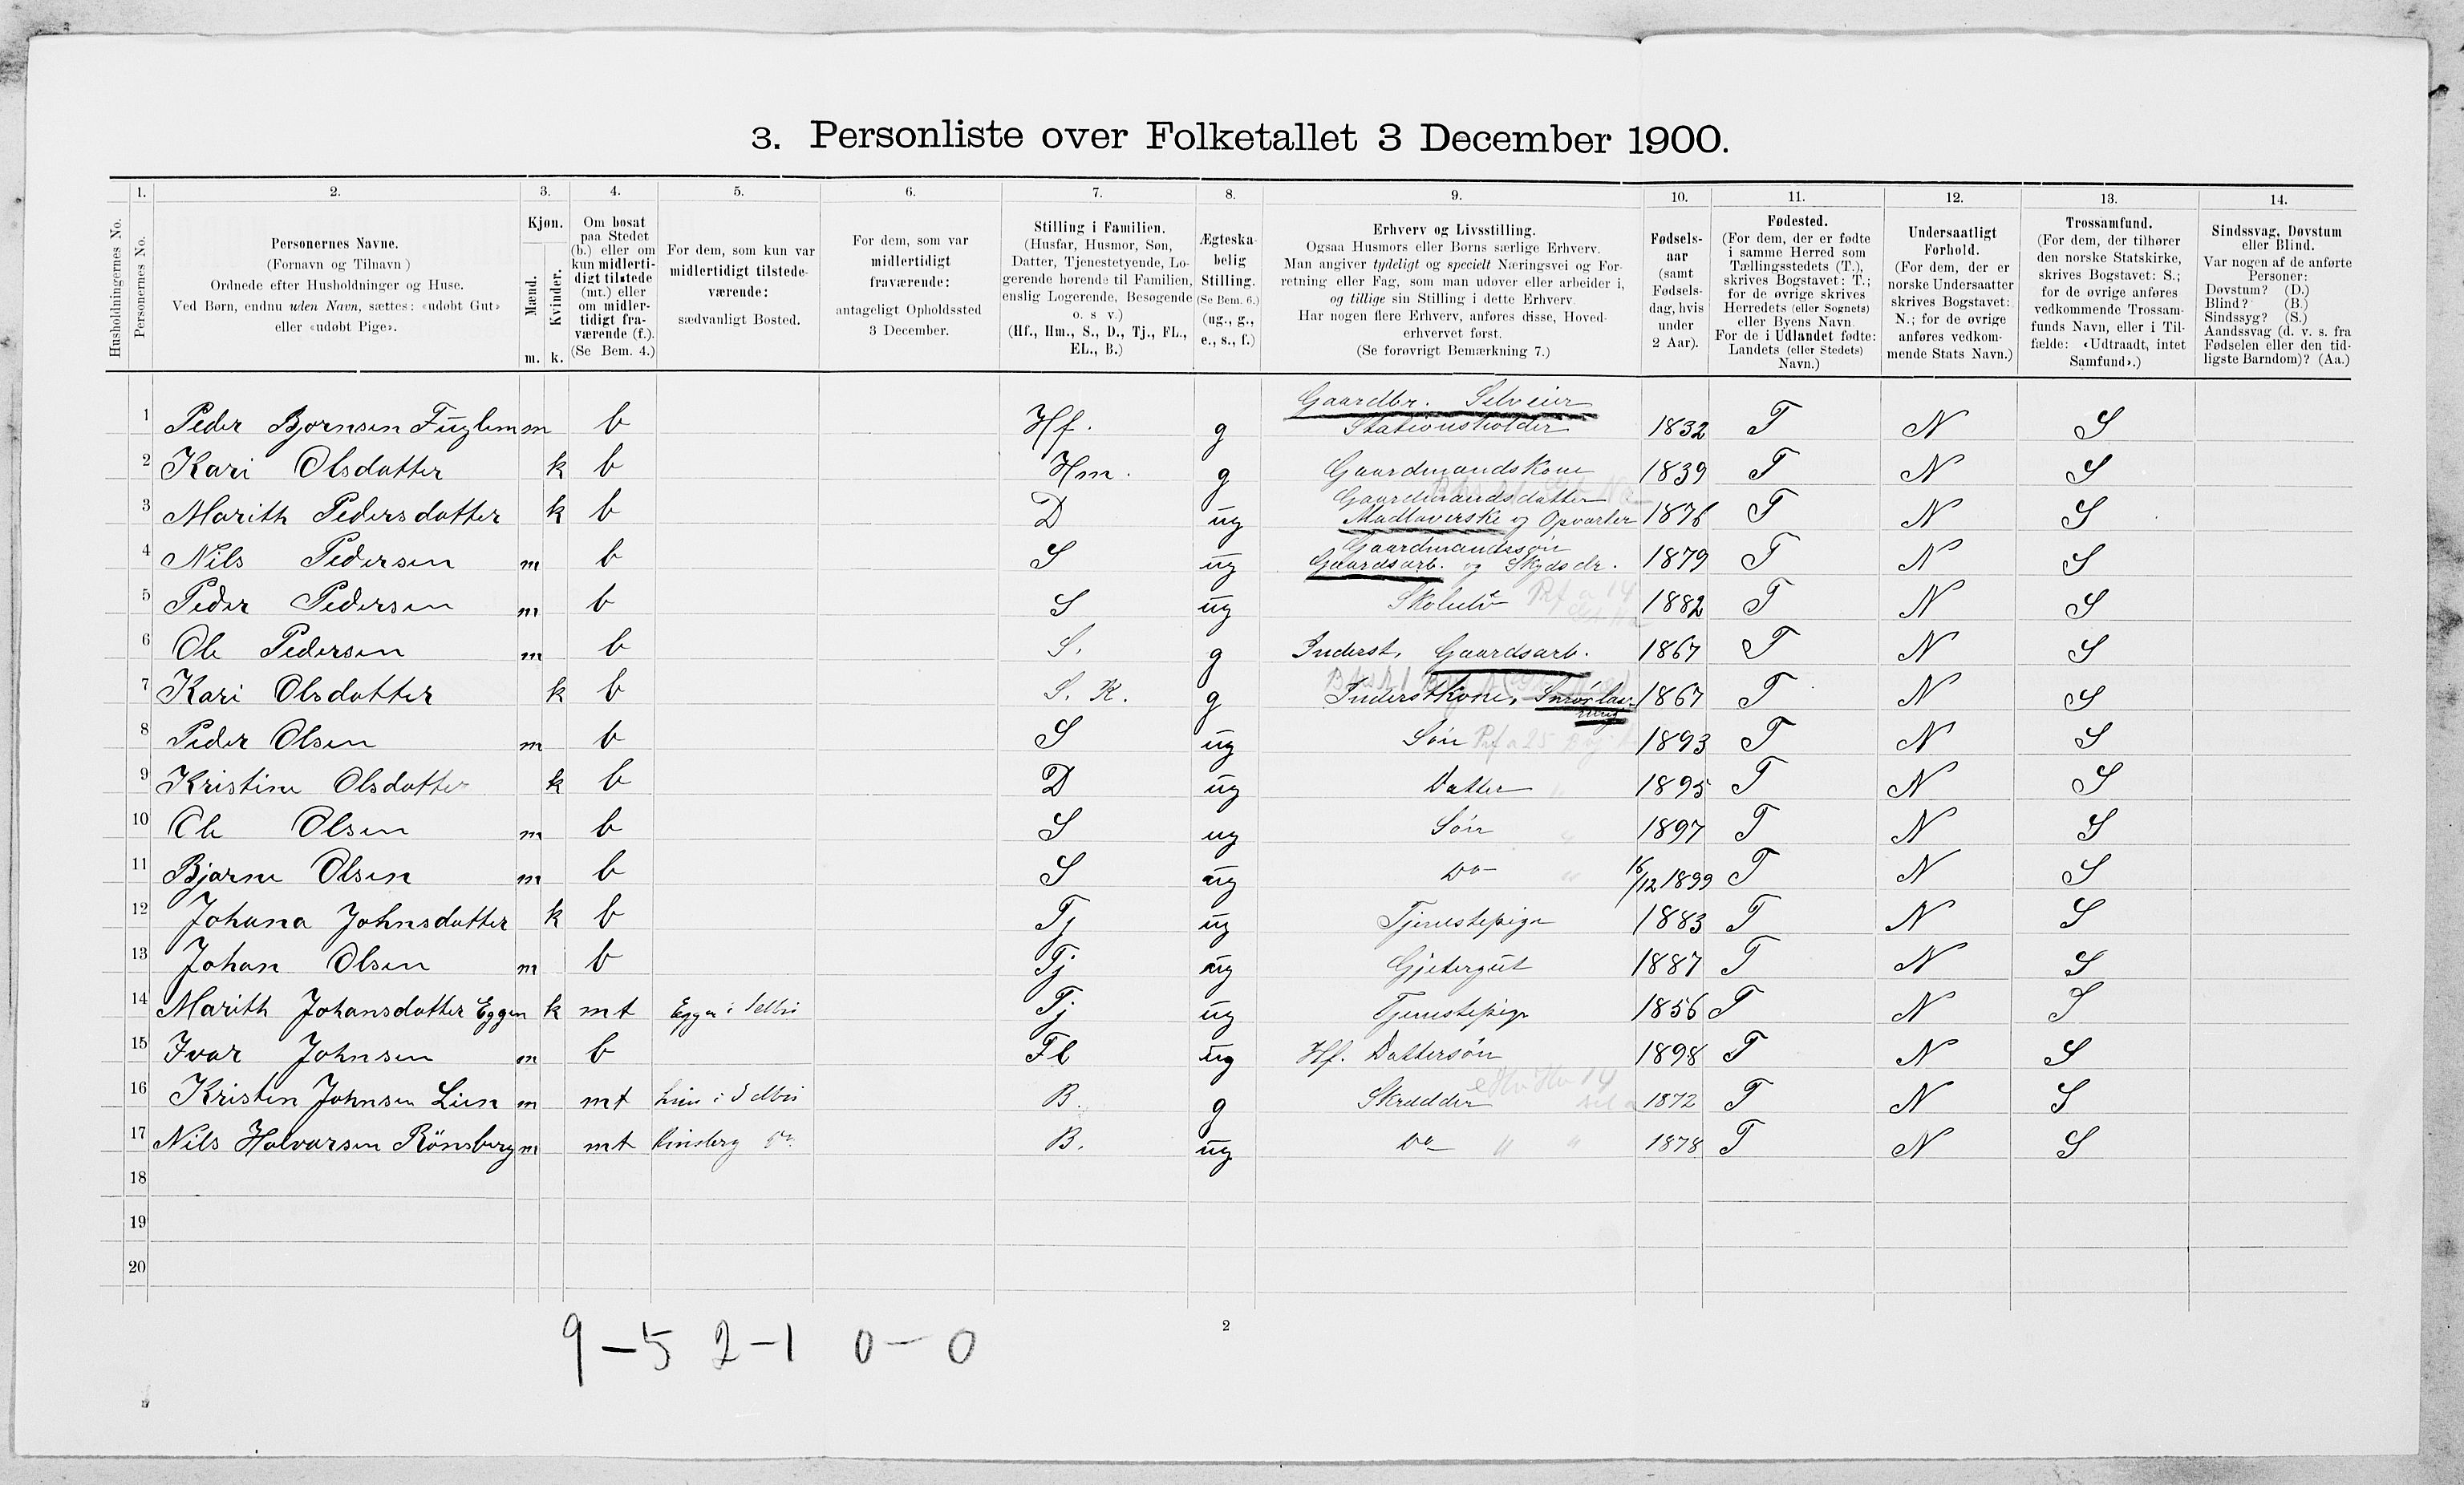 3. Personliste over Folketallet 3 December 1900.
1. 2. 3. 4. 5. 6. 7. 8. 9. 10. 11. 12. 13. 14.
Husholdningernes No.
Personernes No.
Personernes Navne.
(Fornavn og Tilnavn)
Ordnede efter Husholdninger og Huse.
Ved Børn, endnu uden Navn, sættes: «udøbt Gut»
eller «udøbt Pige».
Kjøn.
Mænd.
Kvinder.
m. k.
Om bosat
paa Stedet
(b.) eller om
kun midlerti-
digt tilstede
(mt.) eller
om midler-
tidigt fra-
værende (f.).
(Se Bem. 4.)
For dem, som kun var
midlertidigt tilstede-
værende:
sædvanligt Bosted.
For dem, som var
midlertidigt
fraværende:
antageligt Opholdssted
3 December.
Stilling i Familien.
(Husfar, Husmor, Søn,
Datter, Tjenestetyende, Lo-
gerende hørende til Familien,
enslig Logerende, Besøgende
o. s v.)
(Hf., Hm., S., D., Tj., FL.,
EL., B.)
Ægteska-
belig
Stilling.
(Se Bem. 6.)
(ug., g.,
e., s., f.)
Erhverv og Livsstilling.
Ogsaa Husmors eller Børns særlige Erhverv.
Man angiver tydeligt og specielt Næringsvei og For-
retning eller Fag, som man udøver eller arbeider i,
og tillige sin Stilling i dette Erhverv
Har nogen flere Erhverv, anføres disse, Hoved-
erhvervet først.
(Se forøvrigt Bemærkning 7.)
Fødsels-
aar
(samt
Fødsels-
dag, hvis
under
2 Aar).
Fødested.
(For dem, der er fødte
i samme Herred som
Tællingsstedets (T.),
skrives Bogstavet: T.;
for de øvrige skrives
Herredets (eller Sognets)
eller Byens Navn.
For de i Udlandet fødte:
Landets (eller Stedets)
Navn.)
Undersaatligt
Forhold.
(For dem, der er
norske Undersaatter
skrives Bogstavet:
N.; for de øvrige
anføres vedkom-
mende Stats Navn.)
Trossamfund.
(For dem, der tilhører
den norske Statskirke,
skrives Bogstavet: S.;
for de øvrige anføres
vedkommende Trossam-
funds Navn, eller i Til-
fælde: «Udtraadt, intet
Samfund».)
Sindssvag, Døvstum
eller Blind.
Var nogen af de anførte
Personer:
Døvstum? (D.)
Blind? (B.)
Sindssyg? (S.)
Aandssvag (d. v. s. fra
Fødselen eller den tid-
ligste Barndom)? (Aa.)
Gaardbr. Selveier
1 Peder Bjornsen Fuglem m b Hf. g Stationsholder 1832 T N S
2 Kari Olsdatter k b Hm. g Gaardmandskone 1839 T N S
Gaardmandsdatter
3 Marith Pedersdatter k b D ug Madlaverske og Opvarter 1876 T N S
Gaardmandssøn
4 Nils Pedersen m b S ug Gaardsarb. og Skydsdr. 1879 T N S
5 Peder Pedersen m b S ug 1882 T N S
6 Ole Pedersen m b S. g Inderst, Gaardsarb. 1867 T N S
7 Kari Olsdatter k b S. K. g Inderstkone, 1867 T N S
8 Peder Olsen m b S ug Søn 1893 T N S
9 Kristine Olsdatter k b D ug Datter 1895 T N S
10 Ole Olsen m b S ug Søn 1897 T N S
11 Bjarne Olsen m b S ug Do 16/12 1899 T N S
12 Johana Johnsdatter k b Tj ug Tjenestepige 1883 T N S
13 Johan Olsen m b Tj ug Gjetergut 1887 T N S
14 Marith Johansdatter Eggen k mt Eggen i Selbu Tj ug Tjenestepige 1856 T N S
15 Ivar Johnsen m b Fl ug Hf. Dattersøn 1898 T N S
16 Kristen Johnsen Lien m mt Lien i Selbu B. g Skrædder 1872 T N S
17 Nils Halvarsen Rönsberg m mt Rönsberg Do B. ug Do 1878 T N S
18
19
20
2
9-5 2-1 0-0